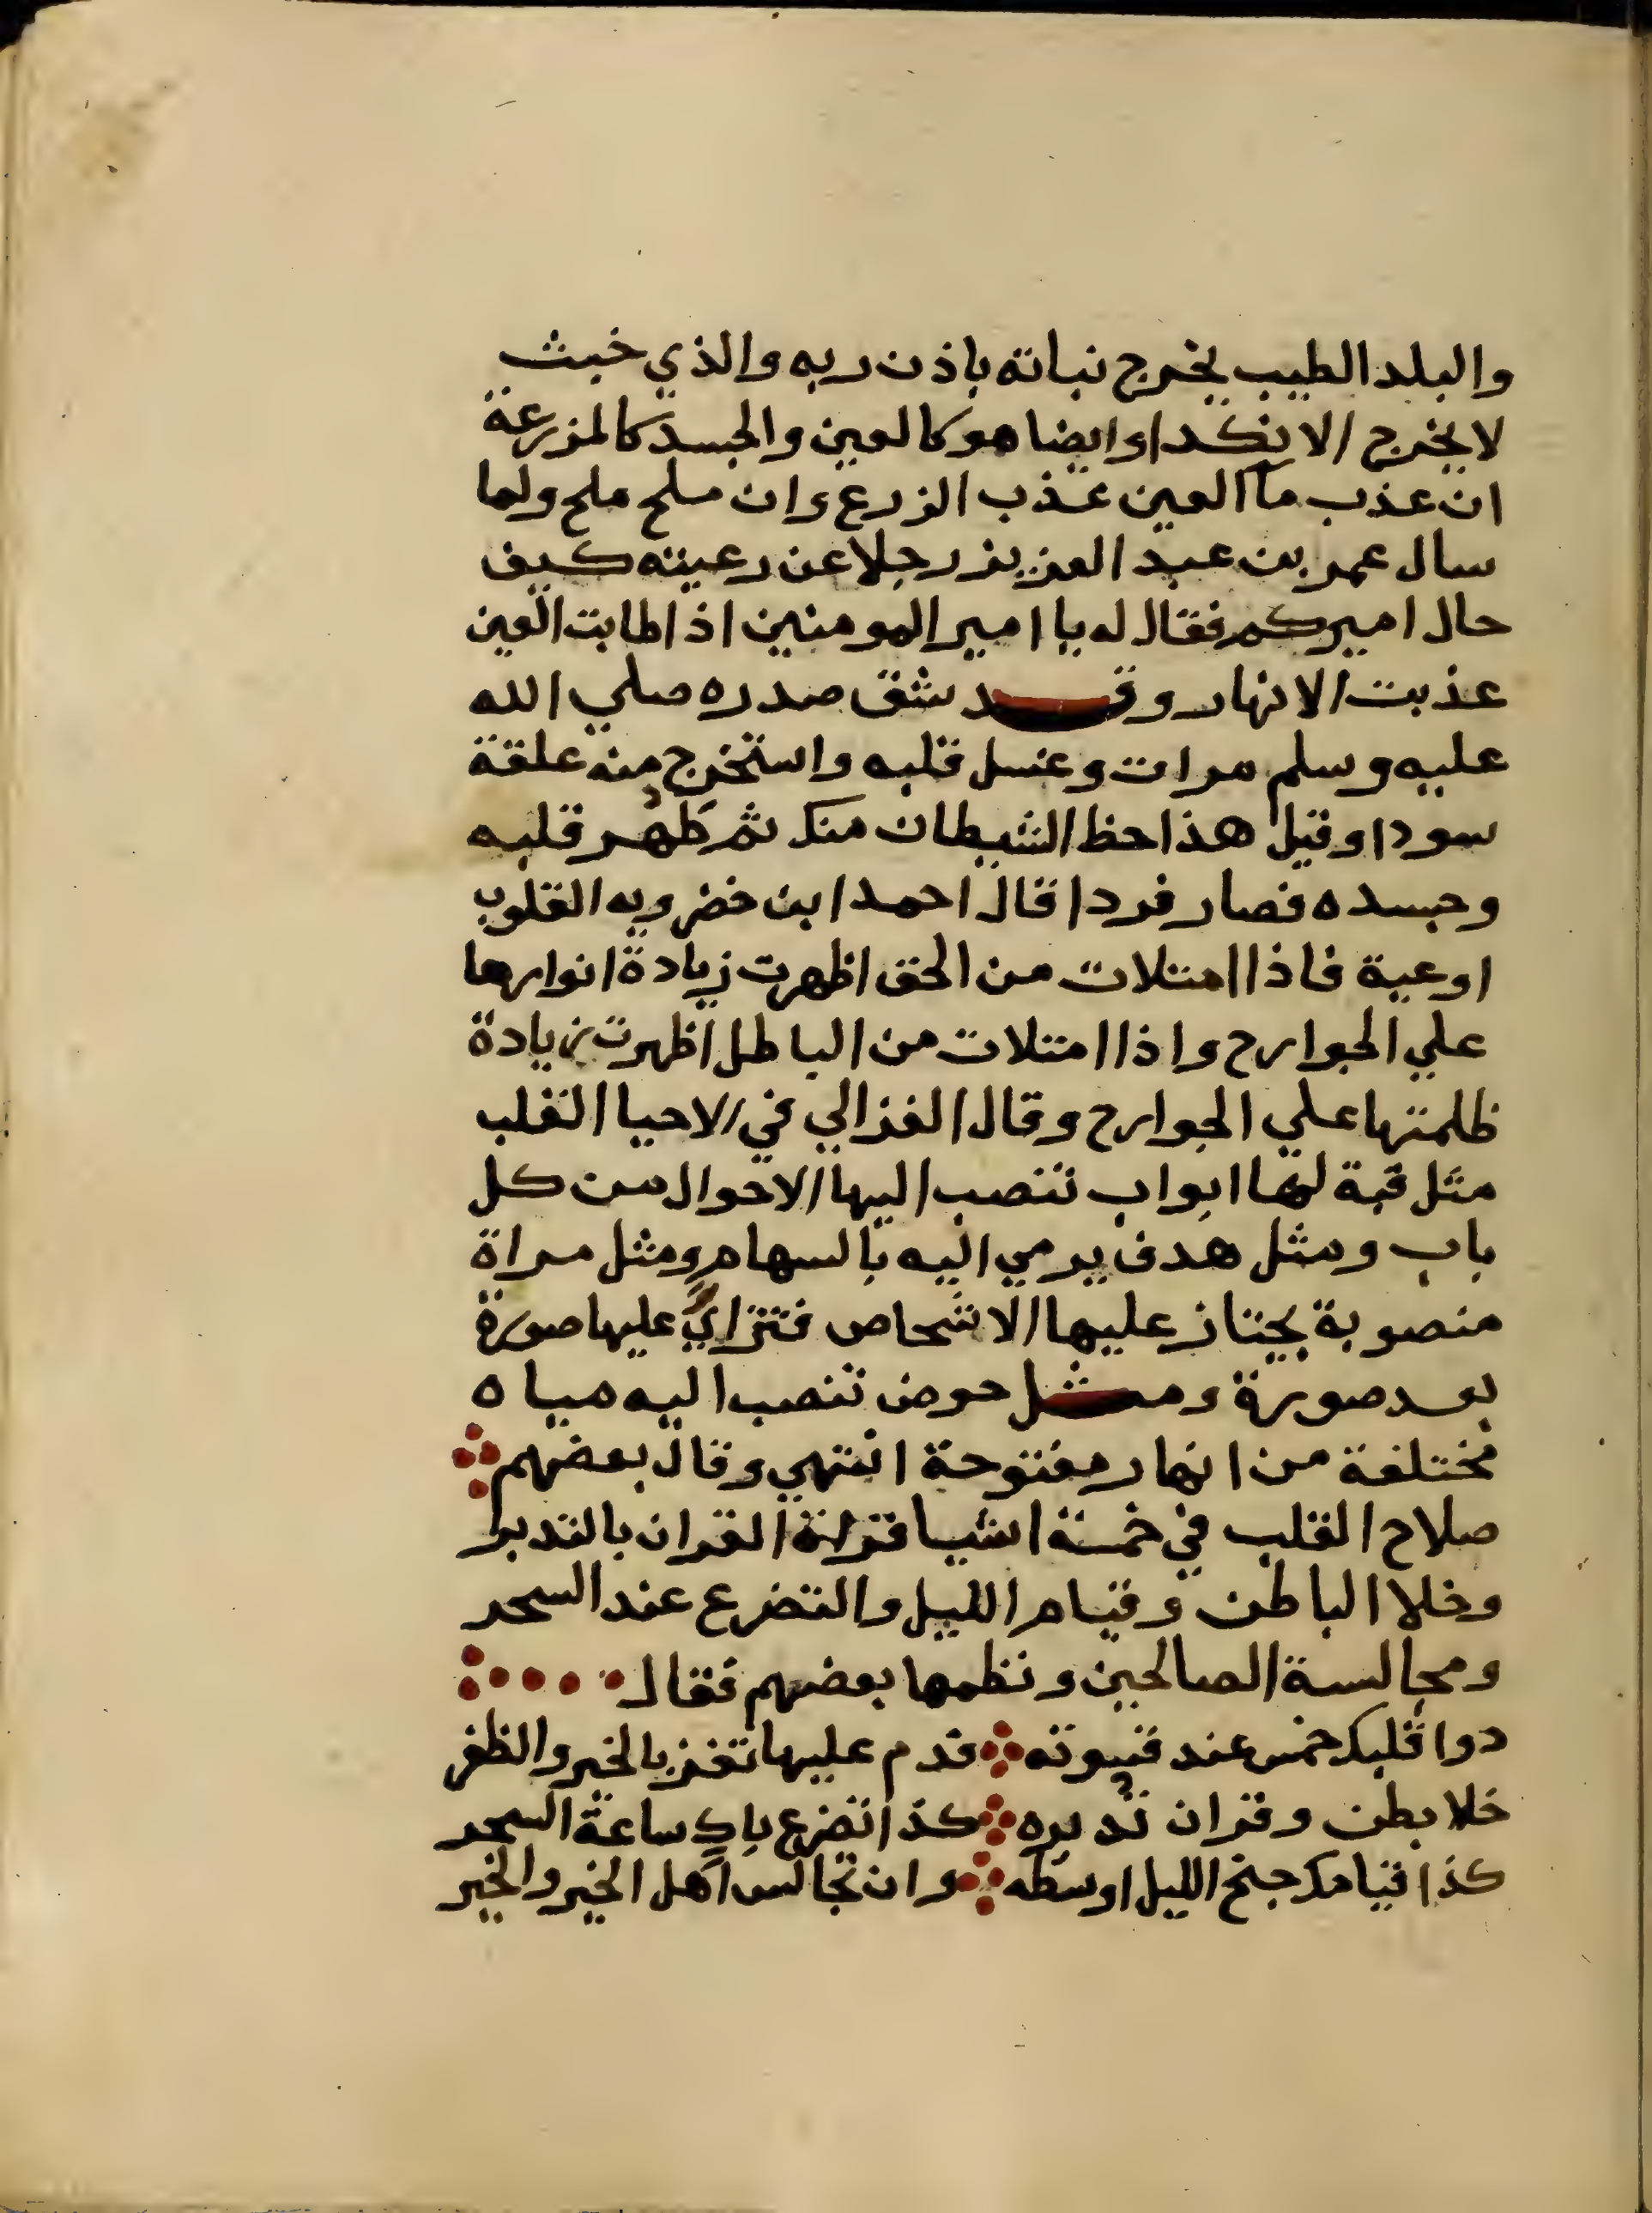 والبلد الطيب يخرج نباته باذن ربه والذي خبث
لا يخرج الا نكدا وايضا هو كالعين والجسد كالمزرعة
ان عذب مآ العين عذب الزرع وان ملح ملح ولما
سال عمر بن عبد العزيز رجلا عن رعيته كيف
حال اميركم فقال له يا امير المومنين اذا طابت العين
عذبت الانهار وقد شق صدره صلي الله
عليه وسلم مرات وغسل قلبه واستخرج منه علقة
سودا وقيل هذا حظ الشيطان منك ثم طهر قلبه
وجسده فصار فردا قال احمد ابن خضرويه القلوب
اوعية فاذا امتلات من الحق اظهرت زيادة انوارها
علي الجوارح واذا امتلات من الباطل اظهرت زيادة
ظلمتها علي الجوارح وقال الغزالي في الاحيا القلب
مثل قبة لها ابواب تنصب اليها الاحوال من كل
باب ومثل هدف يرمي اليه بالسهام ومثل مراة
منصوبة يجتاز عليها الاشخاص فتتراي عليها صورة
بعد صورة ومثل حوض تنصب اليه مياه
مختلفة من انهار مفتوحة انتهي وقال بعضهم
صلاح القلب في خمسة اشيا قراة القران بالتدبر
وخلا الباطن وقيام الليل والتضرع عند السحر
ومجالسة الصالحين ونظمها بعضهم فقال
دوا قلبك خمس عند قسوته قدم عليها تفز بالخير والظفر
خلا بطن وقران تدبره كذا تضرع باك ساعة السحر
كذا قيامك جنح الليل اوسطه وان تجالس اهل الخير والخير